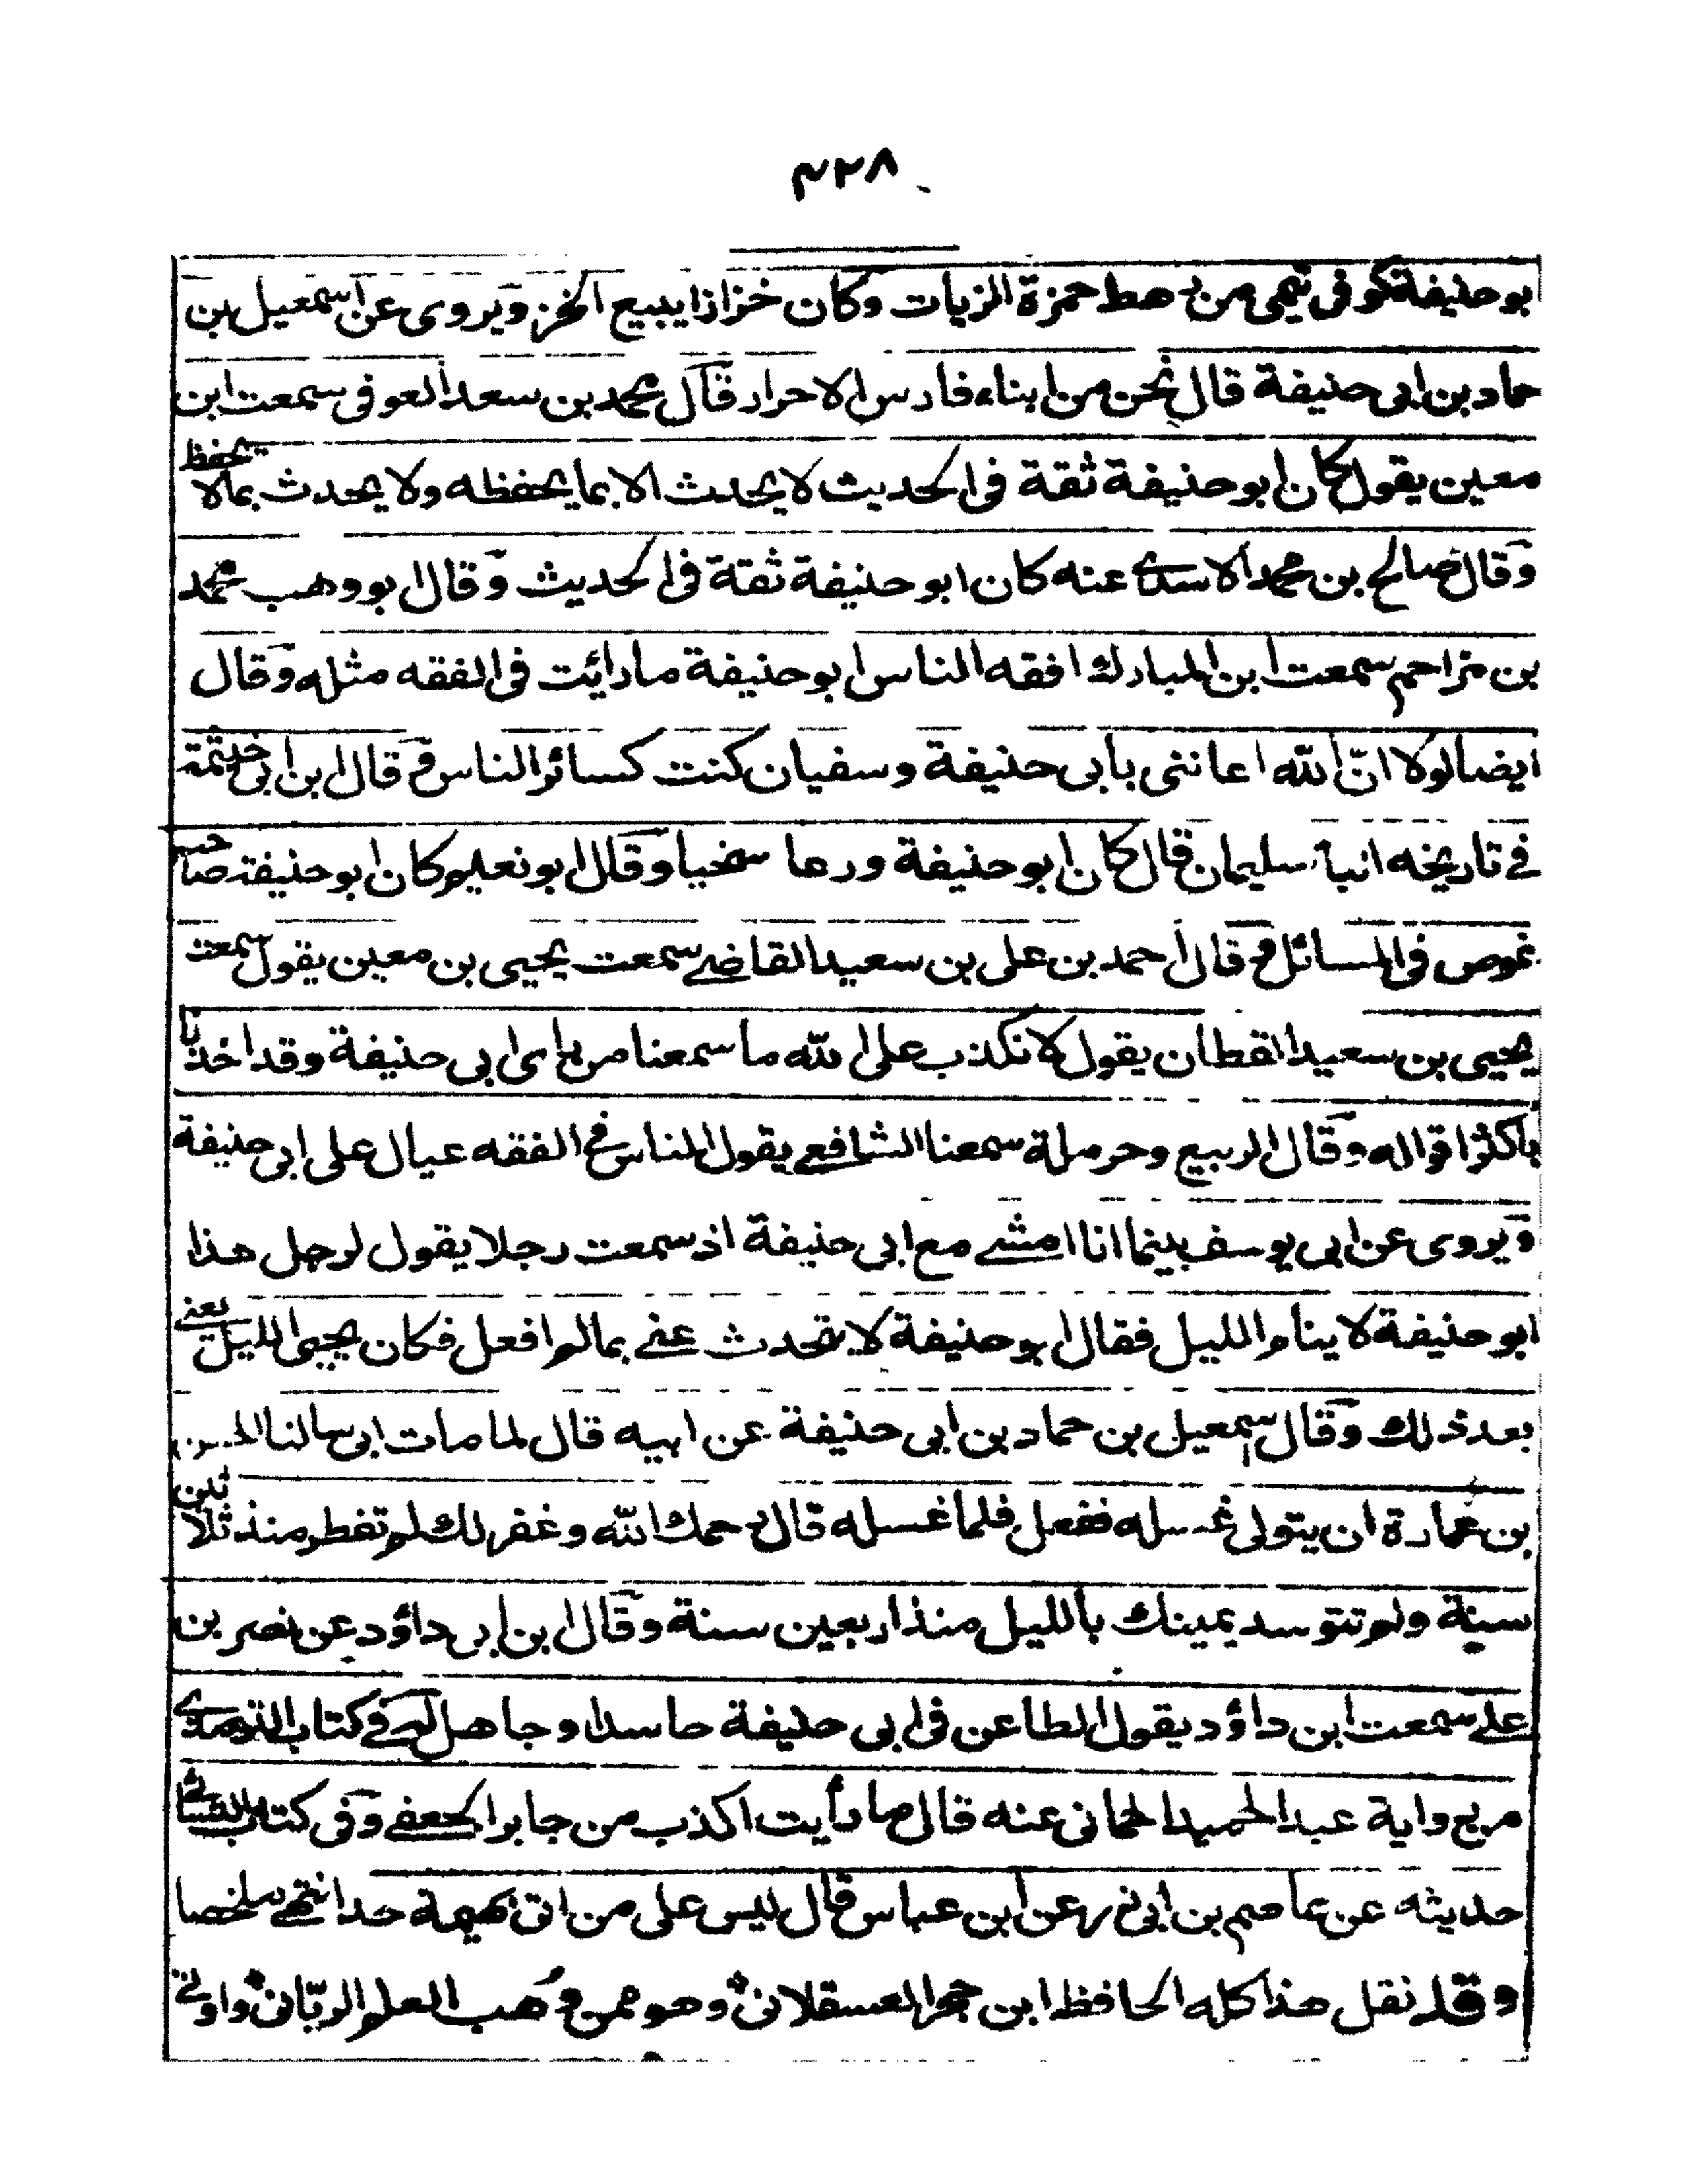 ٤٢٨
بوحنيفة كوفى تيمى من رهط حمزة الزيات وكان خزازا يبيع الخز ويروى عن اسمعيل بن
حماد بن ابى حنيفة قال نحن من ابناء فارس الاحرار قال محمد بن سعد العوفى سمعت ابن
معين يقول كان ابوحنيفة ثقة فى الحديث لا يحدث الا بما يحفظه ولا يحدث بمالا يحفظ
وقال صالح بن محمد الاسدى عنه كان ابوحنيفة ثقة فى الحديث وقال ابو وهب محمد
بن مزاحم سمعت ابن المبارك افقه الناس ابوحنيفة ما رائت فى الفقه مثله وقال
ايضا لولا انّ الله اعاننى بابى حنيفة وسفيان كنت كسائر الناس وقال ابن ابى خيثمة
فى تاريخه انبأ سليمان قال كان ابوحنيفة ورعا سخيا وقال ابونعيم كان ابوحنيفة صاحب
غوص فى المسائل وقال احمد بن على بن سعيد القاضى سمعت يحيى بن معين يقول سمعت
يحيى بن سعيد القطان يقول لا نكذب على الله ما سمعنا من راى ابى حنيفة وقد اخذنا
باكثر اقواله وقال الربيع وحرملة سمعنا الشافعى يقول الناس فى الفقه عيال على ابى حنيفة
ويروى عن ابى يوسف بينما انا امشى مع ابى حنيفة اذ سمعت رجلا يقول لرجل هذا
ابوحنيفة لا ينام الليل فقال ابوحنيفة لا يتحدث عنى بمالم افعل فكان يحيى الليل يعنى
بعد ذلك وقال اسمعيل بن حماد بن ابى حنيفة عن ابيه قال لما مات ابى سالنا الحسن
بن عمارة ان يتولى غسله ففعل فلما غسله قال رحمك الله وغفر لك لم تفطر منذ ثلاثين
سنة ولم تتوسد يمينك بالليل منذ اربعين سنة وقال ابن ابى داؤد عن نصر بن
على سمعت ابن داؤد يقول الطاعن فى ابى حنيفة حاسد او جاهل له فى كتاب الترمذى
من رواية عبد الحميد الحمانى عنه قال ما رأيت اكذب من جابر الجعفى وفى كتاب النسائى
حديثه عن عاصم بن ابى زر عن ابن عباس قال ليس على من اتى بهيمة حد انتهى ملخصا
وقد نقل هذا كله الحافظ ابن حجر العسقلانى وهو ممن وُهب العلم الربّانى واوتى